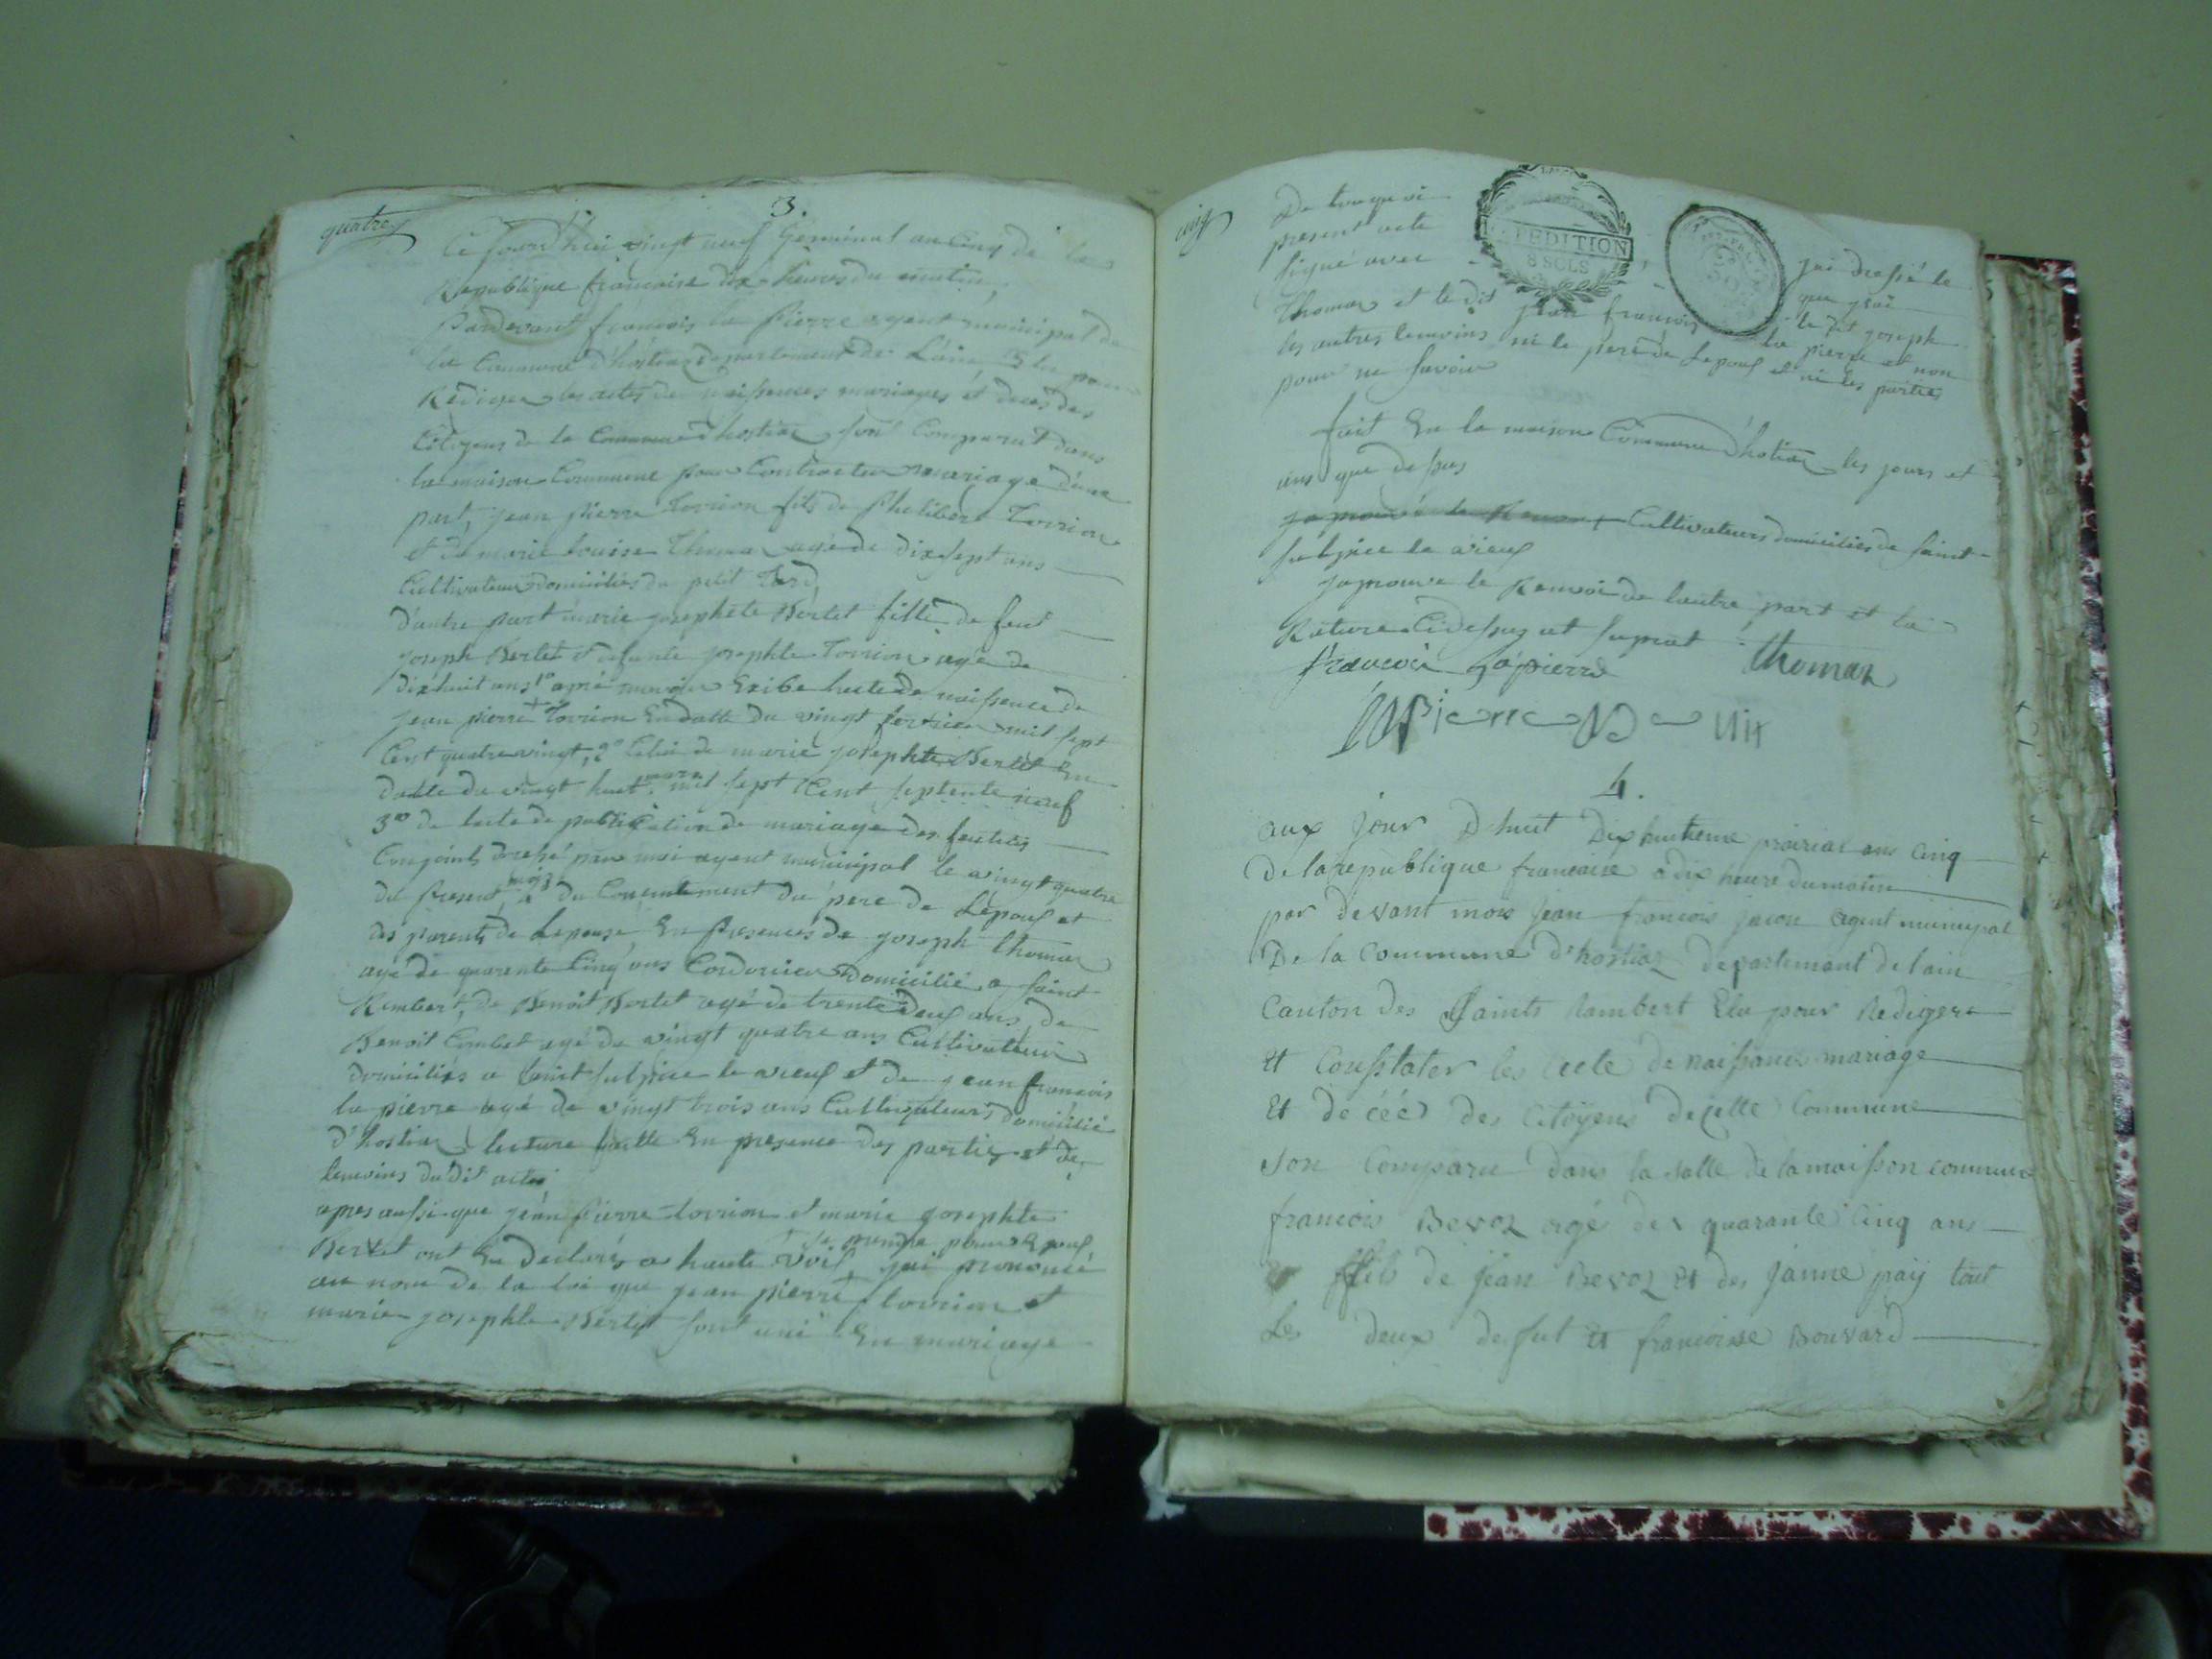 quatre
3.
Ce Jourd'hui vingt neuf Germinal an Cinq de la
Republique francaise dix heures du matin,
Pardevant francois la pierre agent municipal de
la Commune d'hostiaz departement de L'ain, Elu pour
Rediger les actes de naissences mariages et deces des
Citoyens de la Commune d'hostiaz sont Comparut dans
la maison Commune pour Contracter mariage d'une
part, jean pierre Torrion fils de Philibert Torrion
et de marie louise Thomaz agé de dixsept ans
Cultivateurs domiciliés du petit
d'autre part marie josephte Bertet fille de feut
joseph Bertet et defunte josephte Torrion agé de
dixhuit ans 1º apré Exibe lacte de naissence de
jean pierre Torrion En datte du vingt fevrier mil sept
Cent quatre vingt, 2º Celui de marie josephte Bertet En
datte du vingt huit mars mil sept Cent septente neuf
3º de lacte de publication de mariage des feuturs
Conjoints dressé par moi agent municipal le vingt quatre
du present, du Consentement du pere de Lepoux et
des parents de Lepouse, En presences de joseph thomaz
agé de quarente Cinq ans Cordonier Domicilié a saint
Rembert, de Benoit Bertet agé de trente deux ans, de
Benoit Combet agé de vingt quatre ans Cultivateurs
domiciliés a saint sulpice le vieux et de jean francois
la pierre agé de vingt trois ans Cultivateurs domicilié
d'hostiaz lecture faitte En presence des parties et de
temoins du dit acte
apres aussi que jean pierre torrion et marie josephte
se prendre pour Epoux
Bertet ont En declarés a haute voix, jai prononcé
au nom de la loi que jean pierre torrion et
marie josephte Bertet sont uni En mariage
cinq
De tou quoi jai dressé le
present acte que jrai
signé avec le dit joseph
Thomaz et le dit jean francois la pierre et non
les autres temoins ni le pere de Lepoux et ni les parties
pour ne savoir
EXPEDITION
8 SOLS
fait En la maison Commune d'hotiaz les jours et
ans que dessus
Cultivateurs domiciliés de saint
sulpice le vieux
japrouve le Renvoi de lautre part et la
Rature Cidessus
francois Lapierre thomaz
4.
aux jour D huit Dix huitieme prairial ans cinq
De la republique francaise a dix heure du matin
par devant mois jean francois juvon agent municipal
De la Commune d'hostiaz departement de lain
Canton des Saints Rambert Elu pour Rediger
et Constater les acte de naissance mariage
Et de céé des citoyens de cette Commune
son Comparu dans la salle de la maisson commune
francois Bevoz agé des quarante cinq ans
ffils de jean Bevoz et des janne paÿ tout
Les deux defut et francoisse Bouvard